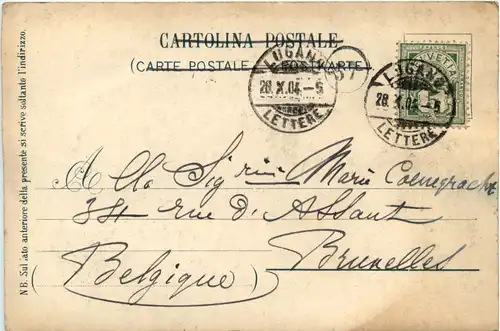 CARTOLINA POSTALE
(CARTE POSTALE POSTKARTE)
LUGANO
28.X.04.-5
LETTERE
HELVETIA
LUGANO
28.X.04.-5
LETTERE
Alla Sigrina Marie
34 rue d'Assaut
Bruxelles
(Belgique)
NB. Sul lato anteriore della presente si scrive soltanto l'indirizzo.